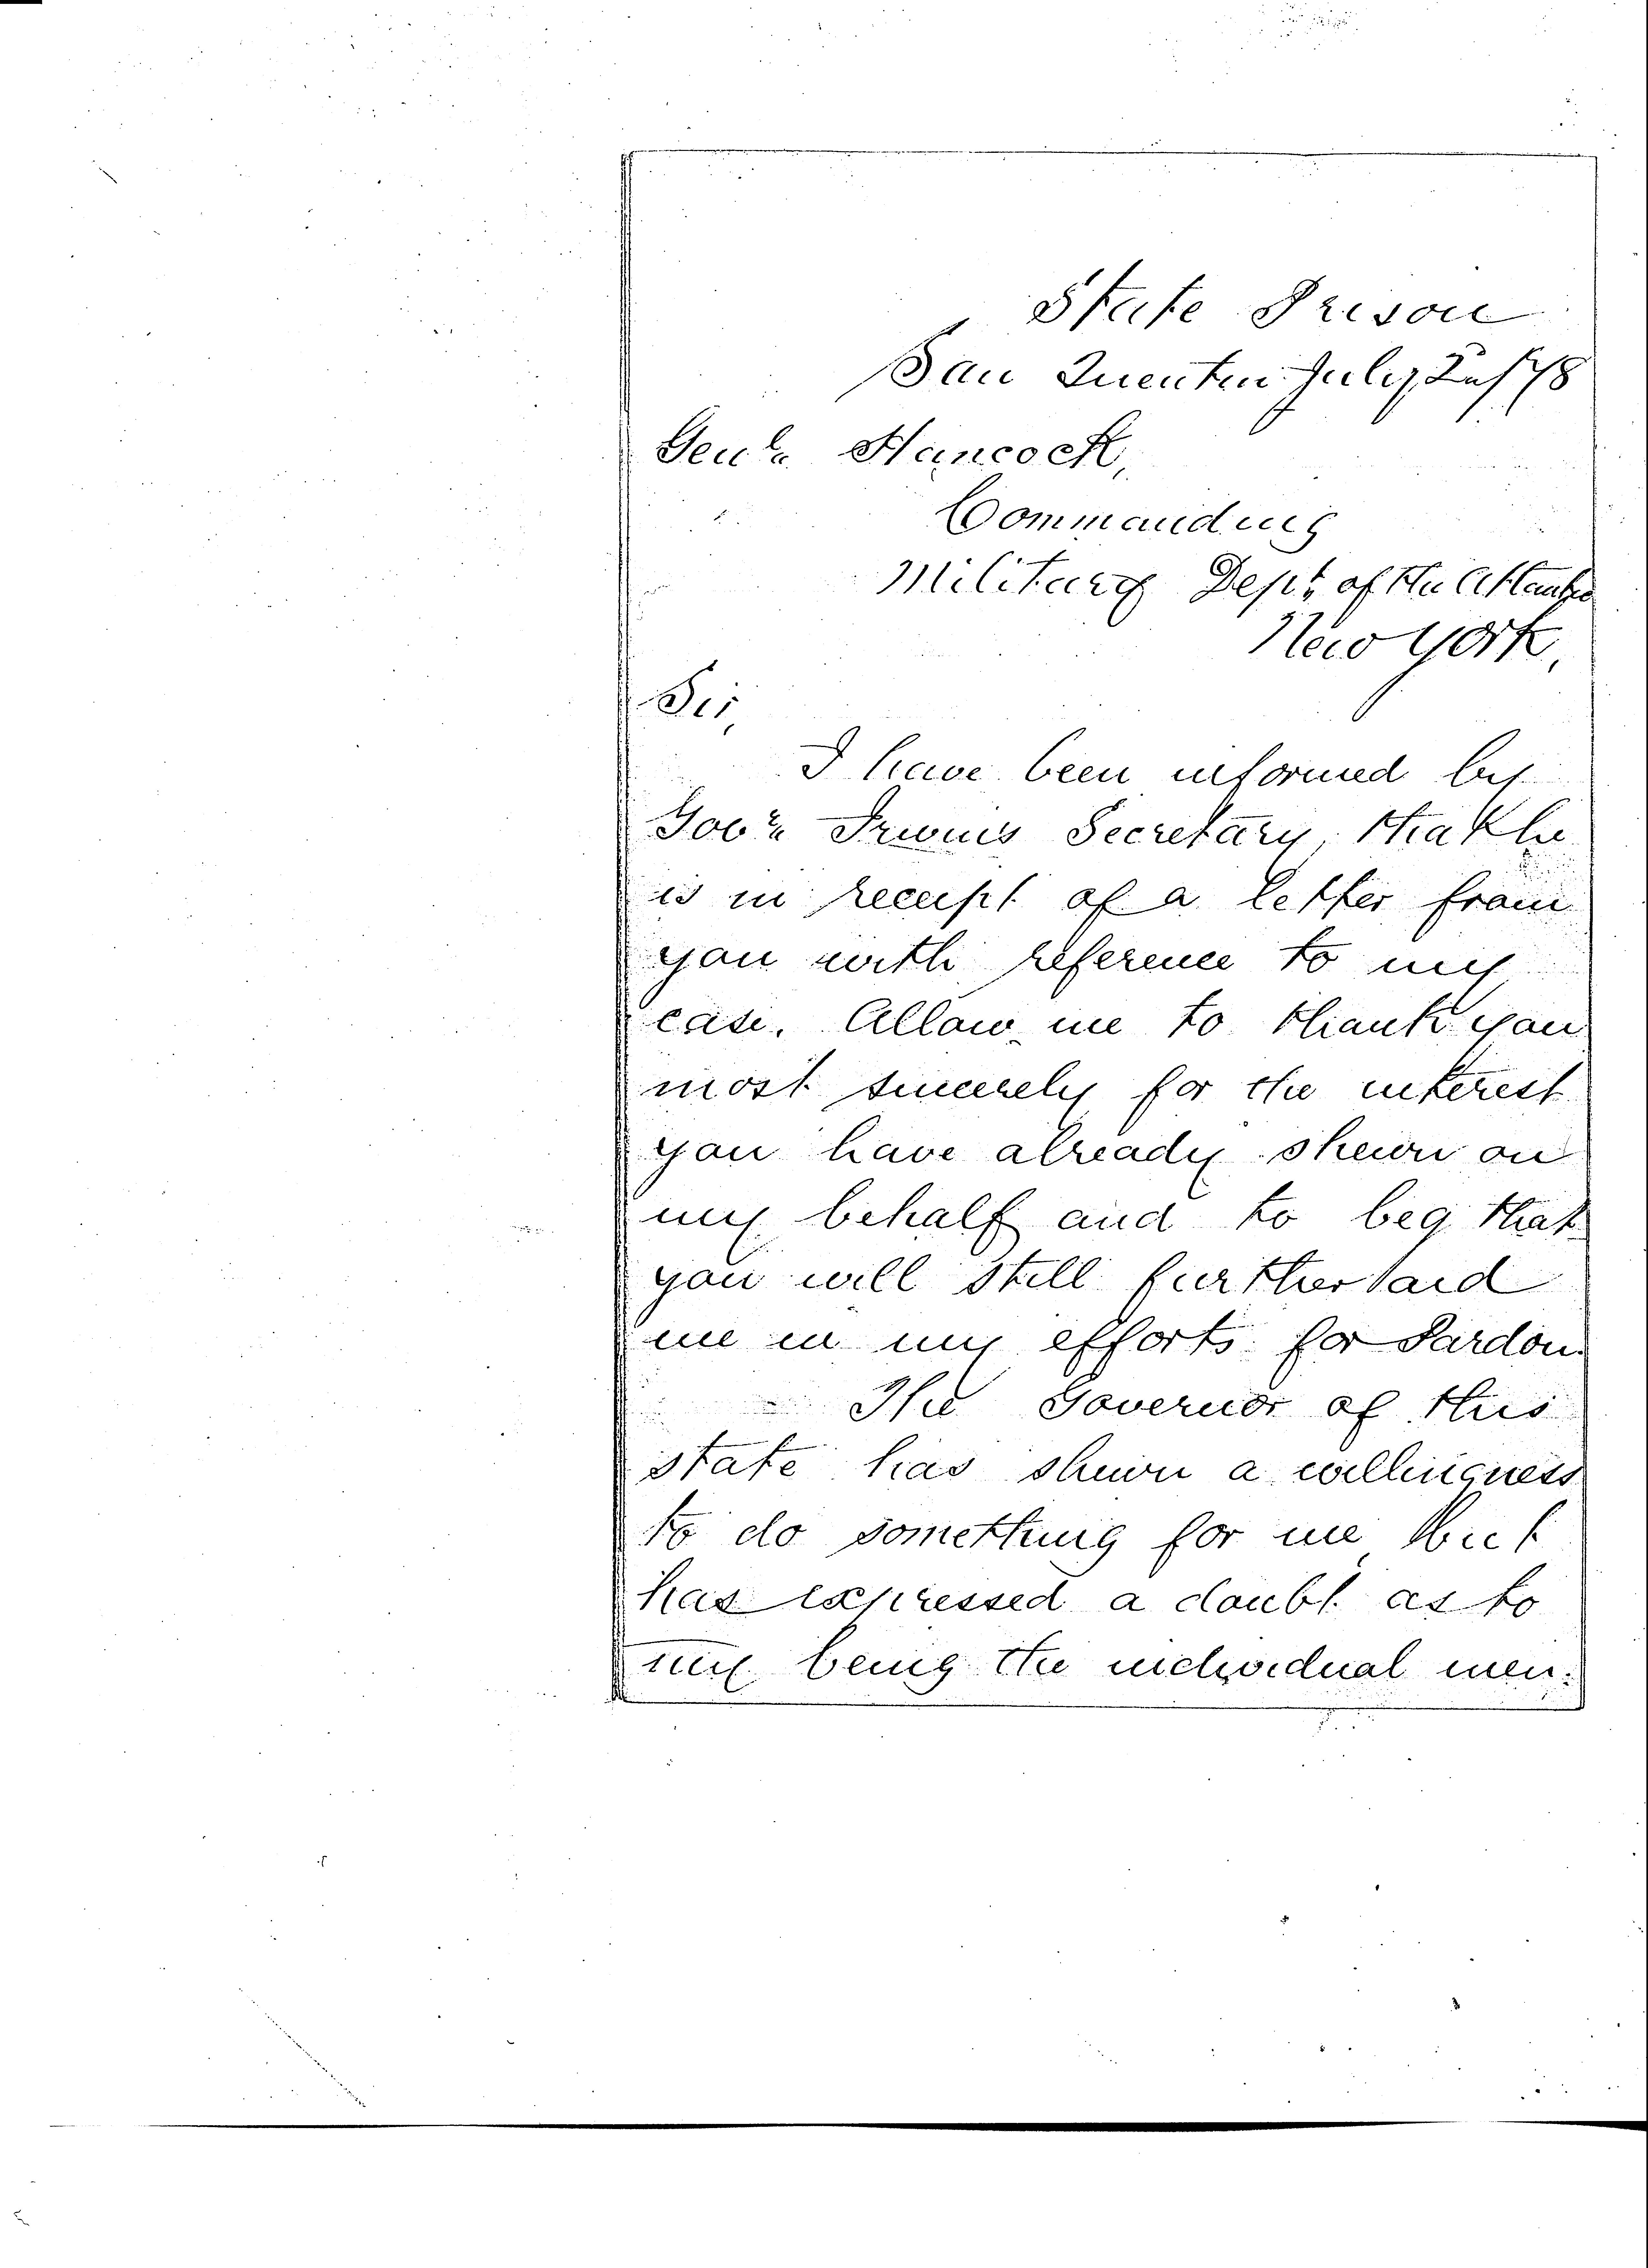 State Prison
San Quentin July 78
Genl. Hancock,
Commanding
Military Dept. of the Atlantic
New York,
Sir,
I have been informed by
Govr. Irwins Secretary, that he
is in receipt of a letter from
you with reference to my
case. Allow me to thank you
most sincerely for the interest
you have already shewn on
my behalf and to beg that
you will still further aid
me in my efforts for Pardon.
The Governor of this
state has shewn a willingness
to do something for me but
has expressed a doubt as to
my being the individual men-